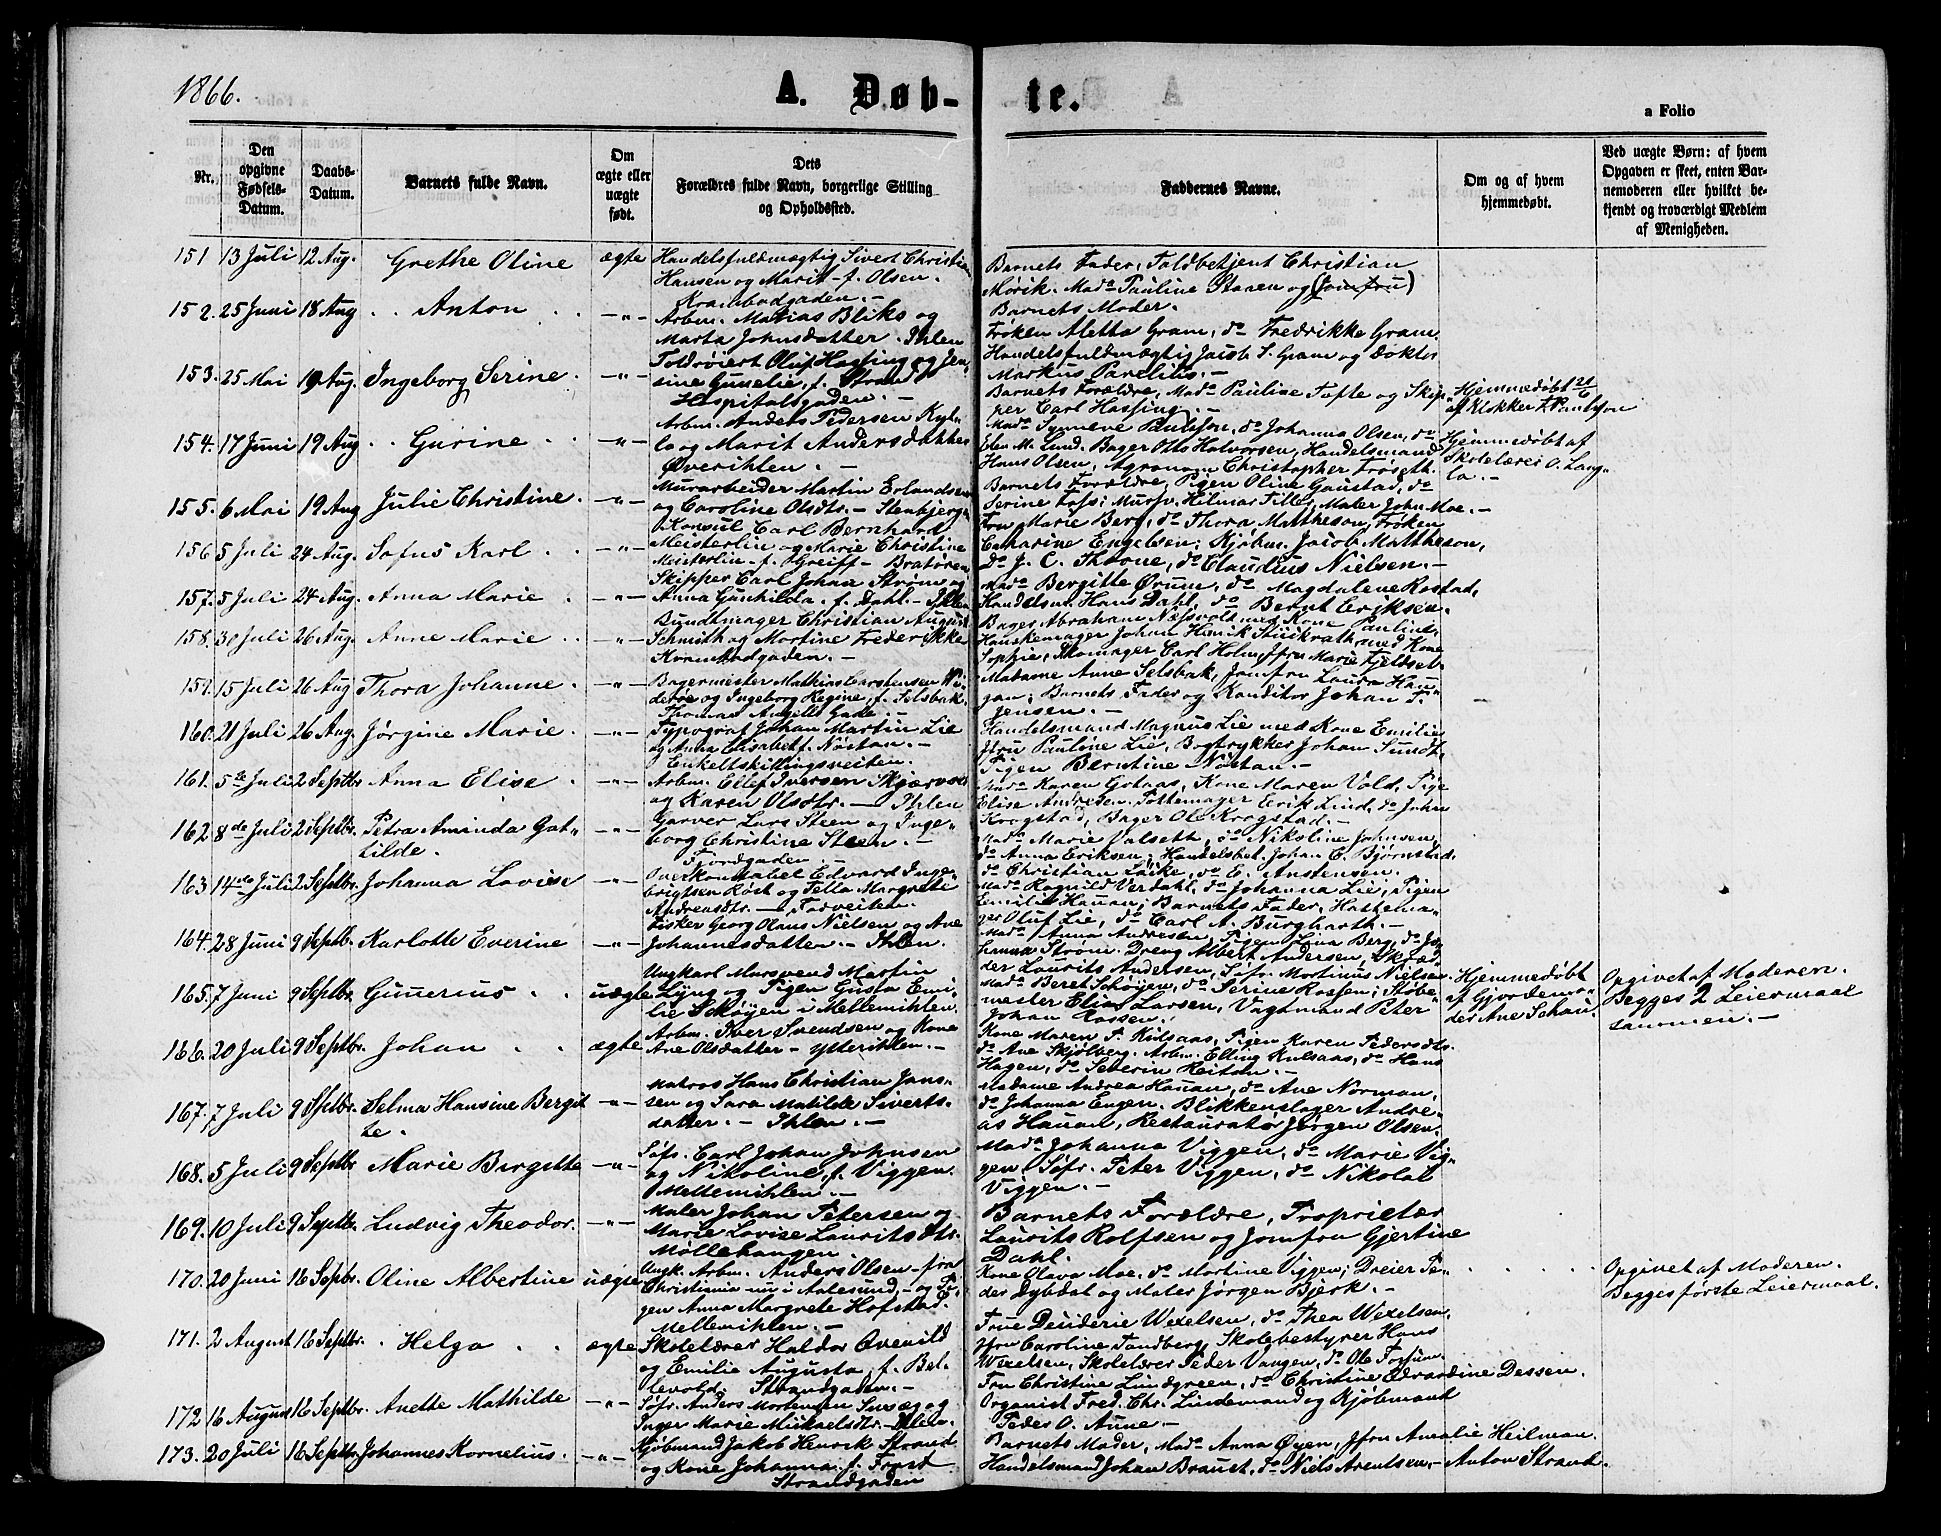 1866.
A. Døb- te.
a Folio
Nr.
Den opgivne Fødsels-Datum.
Daabs-Datum.
Barnets fulde Navn.
Om ægte eller uægte født.
Dets Forældres fulde Navn, borgerlige Stilling og Opholdssted.
Faddernes Navne.
Om og af hvem hjemmedøbt.
Ved uægte Børn: af hvem Opgaven er skeet, enten Barnemoderen eller hvilket bekjendt og troværdigt Medlem af Menigheden.
151 13 Juli 12 Aug. Grethe Oline ægte Handelsfuldmægtig Sivert Christian
Hansen og Marit f. Olsen.
Krambodgaden. -
Barnets Fader, Toldbetjent Christian
Mørik. Mad. Pauline Staren og (Jomfru)
Barnets Moder.
152. 25 Juni 18 Aug Anton -"- Arbm. Matias Bliks og
Marta Johnsdatter. Ihlen
Frøken Aletta Gram, do Fredrikke Gram
Handelsfuldmægtig Jacob S. Gram og Doktor
Markus Parelius. -
153. 25 Mai 19 Aug. Ingeborg Serine. -"- Toldroiert Oluf Hassing og Jen-
sine Gunelie, f. Strand
Hospitalsgaden. -
Barnets Forældre, Mad. Pauline Tofte og Skip-
per Carl Hassing. -
Hjemmedøbt 21/6
af Klokker F. Paulson
154. 17 Juni 19 Aug Gurine -"- Arbm. Anders Pedersen Kul-
lo og Marit Andersdatter
Øverihlen. -
Mad. Synneve Paulson, do Johanna Olsen, do
Elen M. Lund. Bager Otto Halvorsen, Handelsmand
Hans Olsen, Agronom Christopher Frøseth.
Hjemmedøbt af
Skolelærer O. Lang-
lo. -
155. 6 Mai 19 Aug Julie Christine. -"- Murarbeider Martin Erlandsen
og Caroline Olsdtr. - Stenbjerg.
Barnets Forældre, Pigen Oline Gaustad, do
Serine Foss; Mursv. Hilmar Tiller, Maler John Moe. -
156 5 Juli 24 Aug. Sofus Karl -"- Konsul Carl Bernhard
Meisterlin og Marie Christine
Meisterlin f. Greiff - Bratøren
Fru Marie Berg, do Thora Mattheson, Frøken
Catharine Engelsen; Kjøbm. Jacob Mattheson,
do J. C. Thorne, do Claudius Nielsen. -
157. 5 Juli 24 Aug. Anna Marie -"- Skipper Carl Johan Strøm og
Anna Gunhilda f. Dahl - Ihlen
Mad. Bergitte Ørum, do Magdalene Rostad,
Handelsm. Hans Dahl, do Bernt Eriksen.
158. 30 Juli 26 Aug. Anne Marie -"- Bundtmager Christian August
Schmith og Martine Frederikke
Krambodgaden. -
Bager Abraham Nesvold med Kone Pauline,
Hanskemager Johan Henrik Stückrath med Kone
Sophie, Skomager Carl Holm, Jfru Marie Fjeldset
159. 15 Juli 26 Aug Thora Johanne. -"- Bagermester Mathias Carstensen Wi-
derøe og Ingeborg Regine, f. Selsbak.
Thomas Angells Gade. -
Madame Anne Selsbak, Jomfru Laura Hau-
gan; Barnets Fader og Konditor Johan F.
Jensen. -
160. 21 Juli 26 Aug. Jørgine Marie. -"- Typograf Johan Martin Lie
og Anna Elisabet f. Nøstan. -
Enkeltskillingsveiten.
Handelsmand Magnus Lie med Kone Emilie
Jfru Pauline Lie, Bogtrykker Johan Sundt,
Pigen Berntine Nøstan. -
161. 5te Juli 2 Septbr. Anna Elise -"- Arbm. Ellef Iversen Skjærvold
og Karen Olsdtr. - Ihlen
Mad. Karen Golaas, Kone Maren Vold, Pige
Elise Andresen. Pottemager Erik Lind, do Johan
Krogstad, Bager Ole Krogstad. -
162 8de Juli 2 Septbr. Petra Aminda Got-
tilde. -"- Garver Lars Steen og Inge-
borg Christine Steen. -
Fjordgaden. -
Mad. Marie Valseth, do Nikoline Johnsen,
do Anna Eriksen; Handelsbet. Johan C. Bjørnstad,
do Christian Løcke, do E. Anstensen.
163 14de Juli 2 Septbr. Johanna Lovise -"- Overkonstabel Edvard Inge-
brigtsen Røst og Tella Margrete
Andreasdtr. - Fadveiten.
Mad. Ragnild Verdahl, do Johanna Lie, Pigen
Emilie Hauan; Barnets Fader, Hattema-
ger Oluf Lie, do Carl A. Burgharth. -
164. 28 Juni 9 Septbr. Karlotte Everine -"- Fisker Georg Olaus Nielsen og Ane
Johannesdatter. - Ihlen.
Mad. Anna Andresen, Pigen Lina Berg, do Jo-
hanna Strøm. Dreng Albert Andersen, Skræd-
der Laurits Andersen, Søfr. Mortinus Nielsen.
165. 7 Juni 9 Septbr. Gunerius uægte Ungkarl Mursvend Martin
Lyng og Pigen Gusta Emi-
lie Schøyen i Mellemihlen.
Mad. Beret Schøyen, do Serine Rossen; Støbe-
mester Elias Larsen, Vagtmand Peter
Johan Rossen.
Hjemmedøbt
af Gjordemo-
der Ane Schau.
Opgivet af Moderen.
Begges 2 Leiermaal
sammen. -
166. 20 Juli 9 Septbr. Johan ægte Arbm. Iver Svendsen og Kone
Ane Olsdatter - Ytterihlen. -
Kone Maren P. Kulsaas, Pigen Karen Pedersdtr.
do Ane Skjølberg. Arbm. Elling Kulsaas, do Hans
Hagen, do Severin Reitan. -
167. 7 Juli 9 Septbr. Selma Hansine Bergit
te. -"- Matros Hans Christian Jans-
sen og Sara Matilde Siverts-
datter. - Ihlen. -
Madame Andrea Hauan, do Ane Norman,
do Johanna Engen. Blikkenslager Andre-
as Hauan, Restauratør Jørgen Olsen.
168. 5 Juli 9 Septbr Marie Birgitte -"- Søfr. Carl Johan Johnsen
og Nikoline, f. Viggen.
Mellemihlen. -
Mad. Johanna Viggen, do Marie Vig-
gen, Søfr. Peter Viggen, do Nikolai
Viggen. -
169. 10 Juli 9 Septbr. Ludvig Theodor. -"- Maler Johan Petersen og
Marie Lovise Laurits Ols.
Møllebangen.
Barnets Forældre, Proprietær
Laurits Rolfsen og Jomfru Gjertine
Dahl.
170. 20 Juni 16 Septbr. Oline Albertine uægte Ungk. Arbm. Anders Olsen - fra
Christiania nu i Aalesund, - og Pi-
gen Anna Margrete Hofstad.
Mellemihlen. -
Kone Olava Moe, do Martine Viggen; Dreier Pe-
der Dybdal og Maler Jørgen Bjerk. -
Opgivet af Moderen.
Begges første Leiermaal.
171. 2 August 16 Septbr. Helga ægte Skolelærer Haldor Qvenild
og Emilie Augusta, f. Bel-
levold. Strandgaden. -
Frue Deuderie Wexelsen, do Thea Wexelsen,
Jfru Caroline Sandberg, Skolebestyrer Hans
Wexelsen, Skolelærer Peder Vangen, do Ole Forsum.
172 16 August 16 Septbr. Anette Mathilde -"- Søfr. Anders Mortensen Snæg og
Inger Marie Mickaelsdtr. - Ihlen.
Fru Christine Lundgreen, do Christine Edvardine Dessen.
Organist Fred. Chr. Lindeman og Kjøbmand
Peder O. Aune. -
173. 20 Juli 16 Septbr. Johannes Kornelius. -"- Kjøbmand Jakob Henrik Strand
og Kone Johanna f. Frost
Strandgaden
Barnets Moder, Mad. Anna Øyen, Jfru Amalie Heilman.
Handelsmand Johan Brauet, do Niels Arentsen, - Anton Strand.